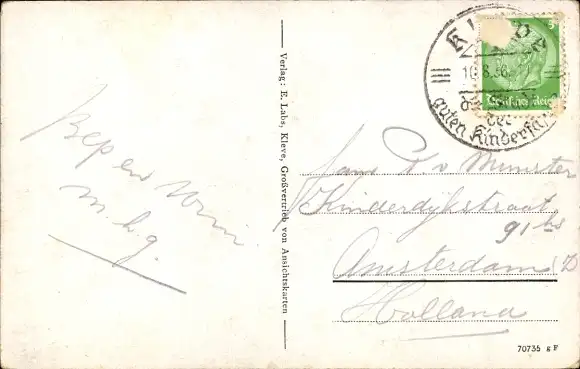 Bep en Wim
m.h.g.
Verlag: E. Labs, Kleve, Großvertrieb von Ansichtskarten
KLEVE
10.8.36.
der
guten Kinderstube
Deutsches Reich
Fam D v Munster
Kinderdijkstraat
91 bs
Amsterdam
Holland
70735 g F